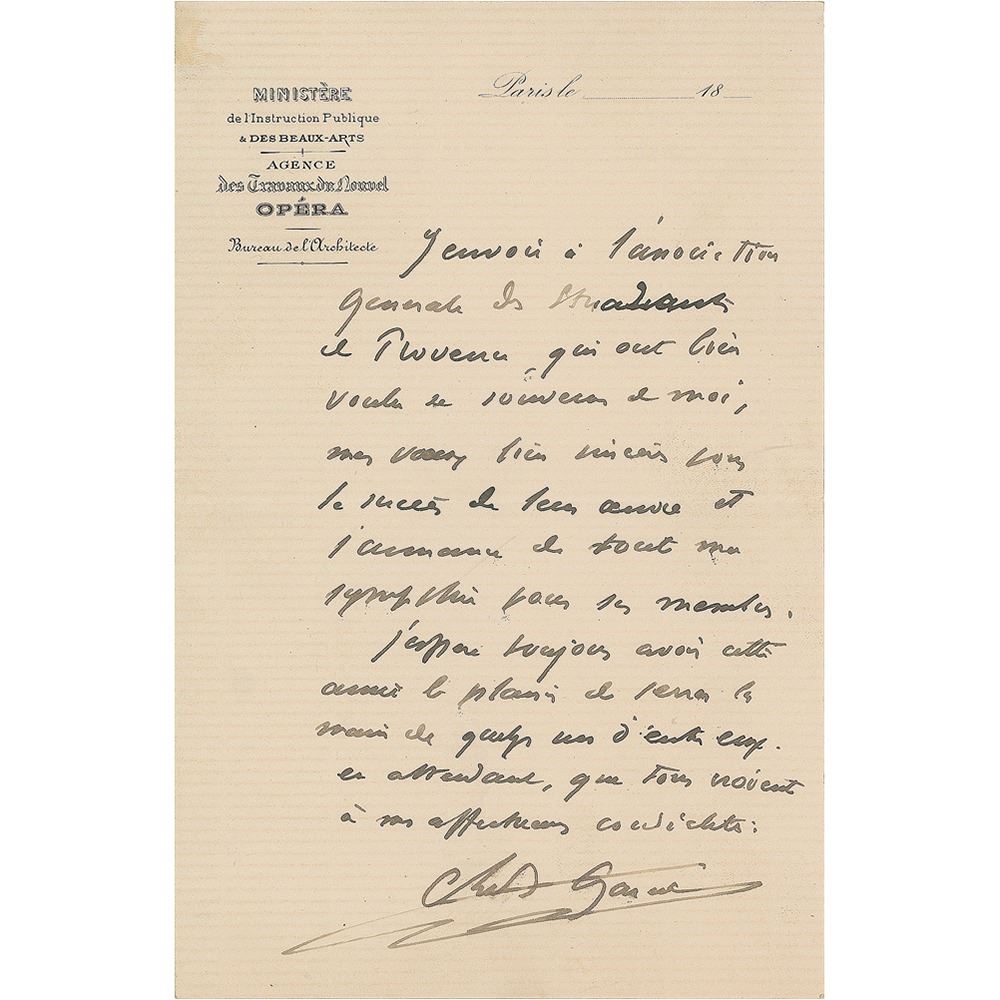 MINISTÈRE
de l'Instruction Publique
& DES BEAUX-ARTS
AGENCE
des Travaux du Nouvel
OPÉRA
Bureau de l'Architecte
Paris le 18
J'envoi à l'association
Generale des Etudiants
de Provence, qui ont bien
voulu se souvenir de moi,
mes voeux bien sincères pour
le succès de leur œuvre et
l'assurance de toute ma
sympathie pour ses membres.
j'espère toujours avoir cette
année le plaisir de serrer la
main de quelqu'un d'entre eux.
en attendant, que tous croient
à mes affectueuses cordialités.
Ch Garnier